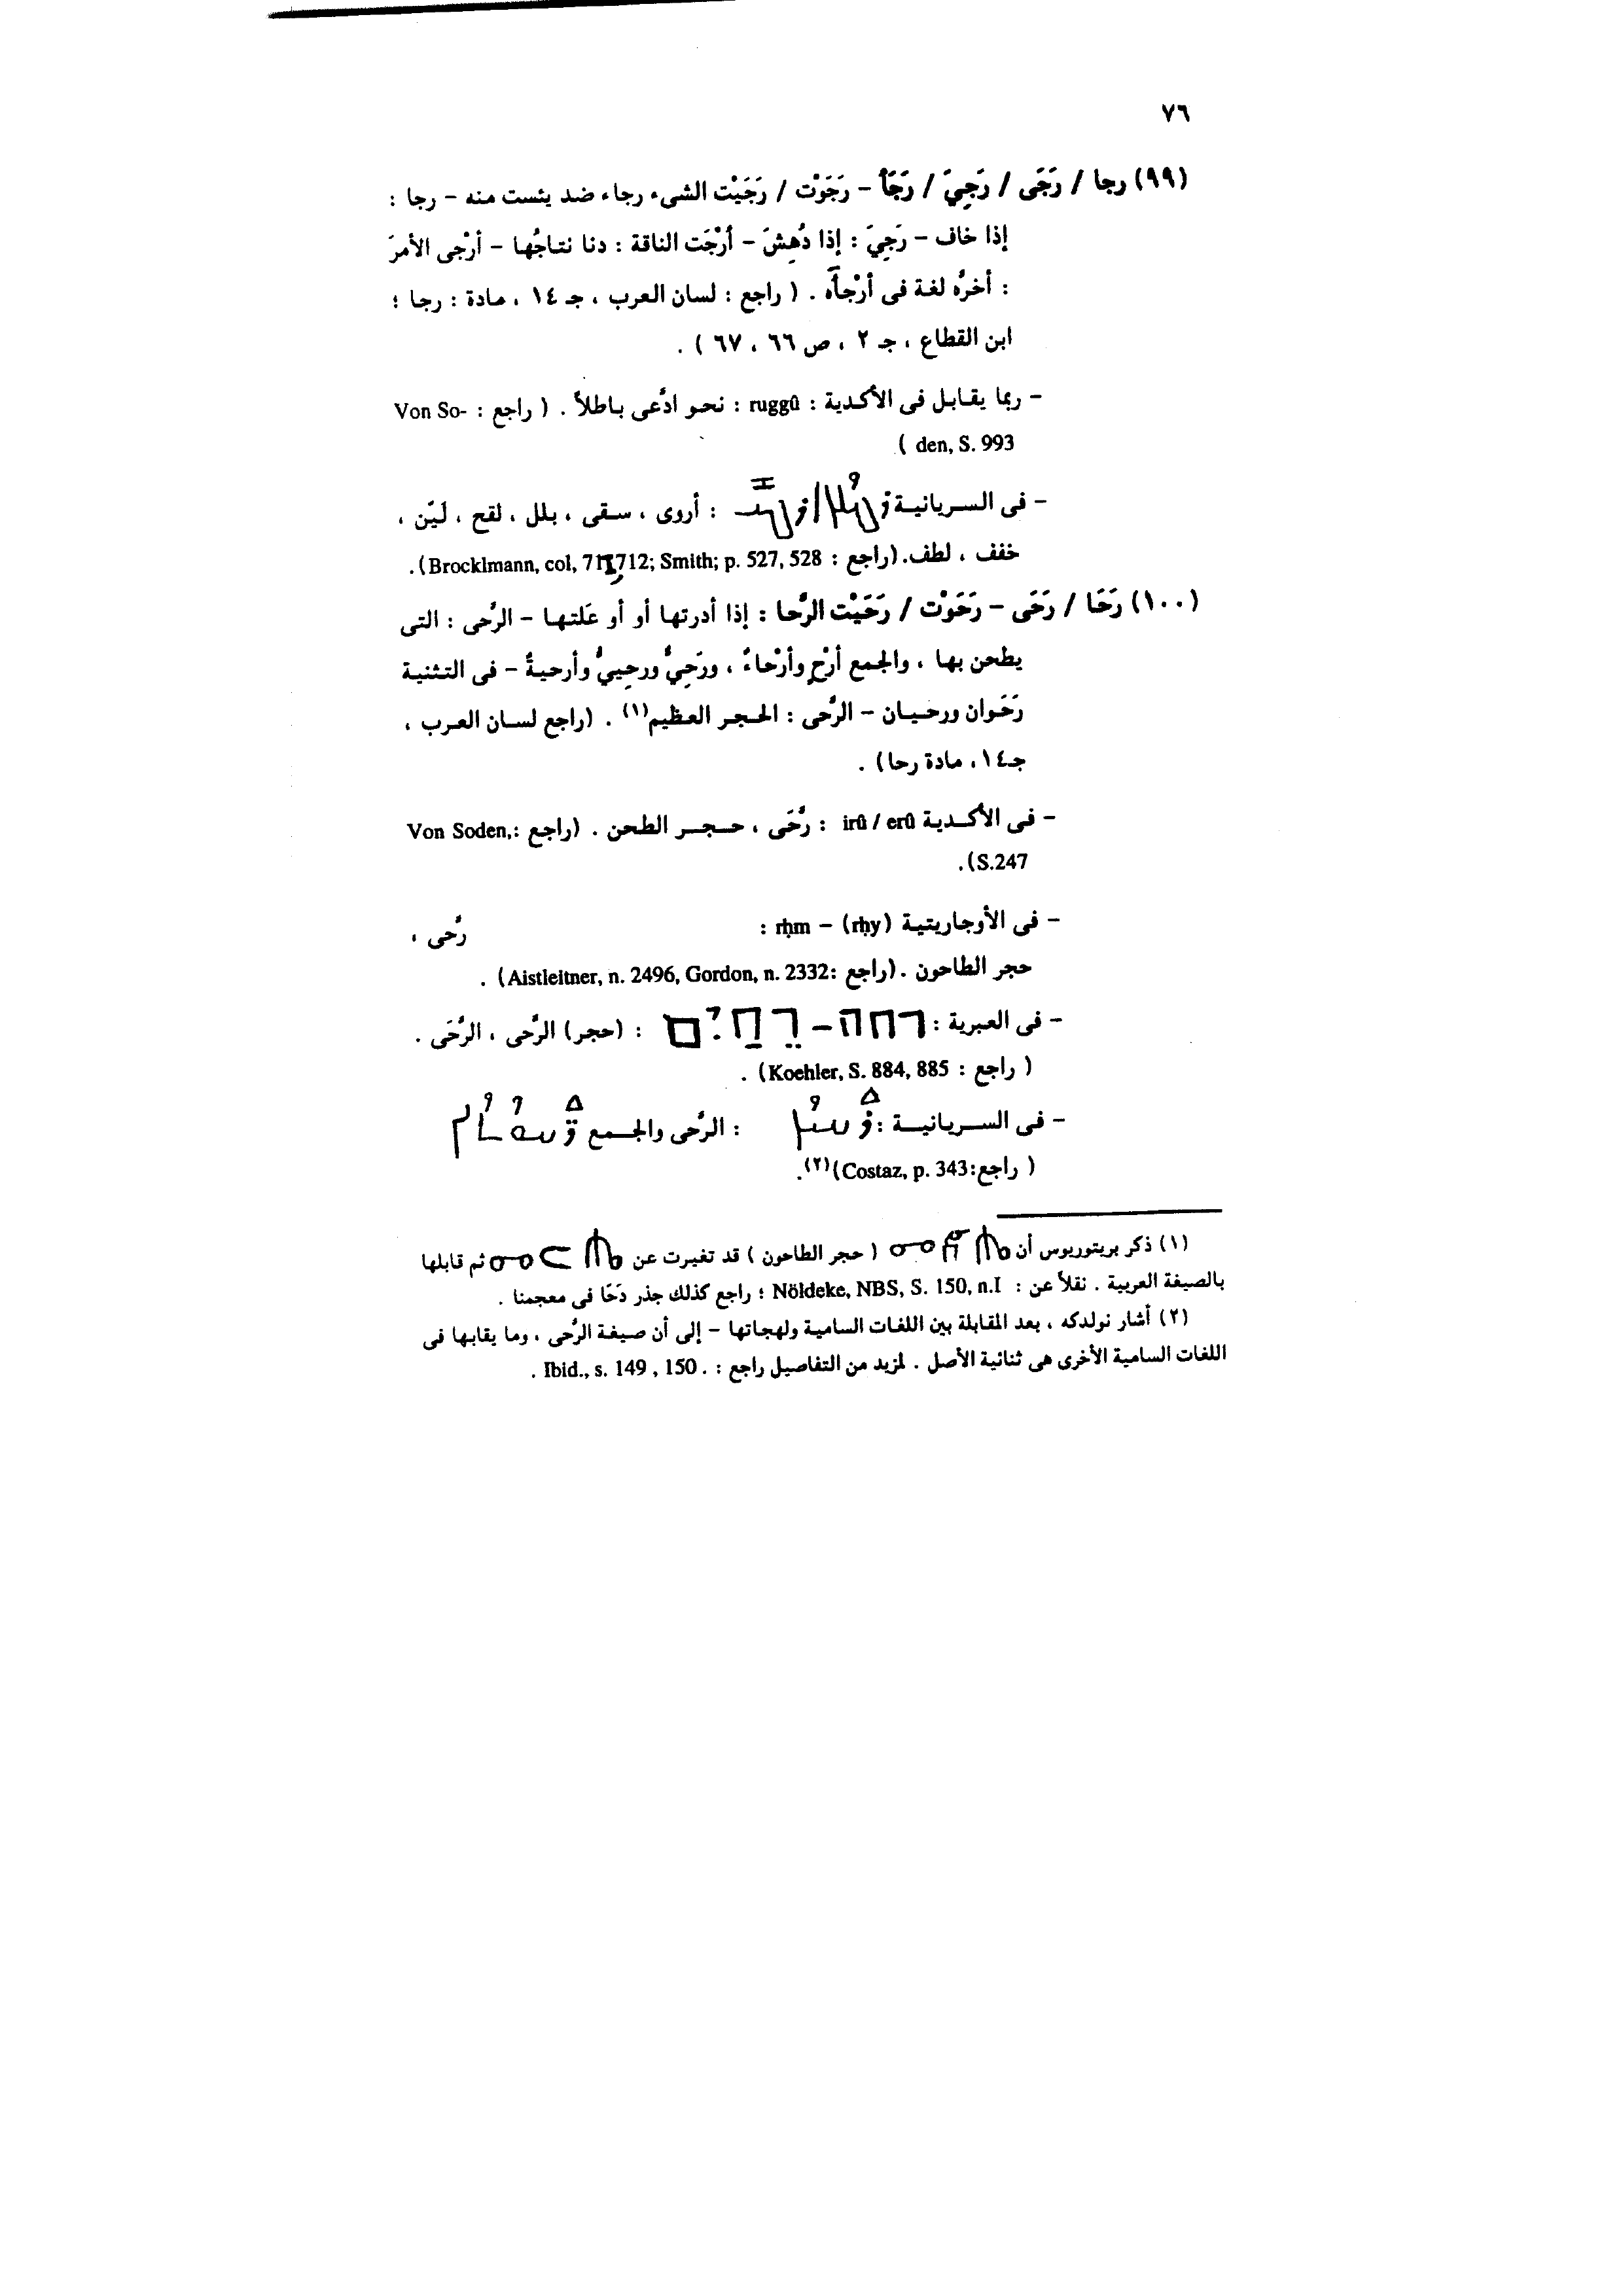 ٧٦
(٩٩) رجا / رَجَى / رَجِيَ / رَجَأ – رَجَوْت / رَجَيْت الشىء رجاء ضد يئست منه – رجا :
إذا خاف – رَجِيَ : إذا دُهِشَ – أرْجَت الناقة : دنا نتاجُها – أرْجى الأمرَ
: أخرُه لغة فى أرْجأه . ( راجع : لسان العرب ، جـ ١٤ ، مادة : رجا ؛
ابن القطاع ، جـ ٢ ، ص ٦٦ ، ٦٧ ) .
– ربما يقابل فى الأكدية : ruggû : نحو ادُعى باطلاً . ( راجع : Von So-
den, S. 993 )
– فى السريانية : أروى ، سقى ، بلل ، لقح ، لَيّن ،
خفف ، لطف. (راجع : Brocklmann, col, 711, 712; Smith; p. 527, 528).
(١٠٠) رَحَا / رَحَى – رَحَوْت / رَحَيْت الرُحا : إذا أدرتها أو أو عَلتها – الرُحى : التى
يطحن بها ، والجمع أرْحٍ وأرْحاءُ ، ورَحِيُّ ورحِييُّ وأرحيةُ – فى التثنية
رَحَوان ورحيان – الرُحى : الحجر العظيم(١) . (راجع لسان العرب ،
جـ١٤، مادة رحا) .
– فى الأكدية irû / erû : رُحَى ، حجر الطحن . (راجع :Von Soden,
S.247).
– فى الأوجاريتية (rḥy) – rḥm : رُحى ،
حجر الطاحون . (راجع :Aistleitner, n. 2496, Gordon, n. 2332) .
– فى العبرية : רחה – רֵחַיִם : (حجر) الرُحى ، الرُحَى .
( راجع : Koehler, S. 884, 885) .
– فى السريانية : ܪܚܝܐ : الرُحى والجمع ܪ̈ܚܘܬܐ
( راجع:Costaz, p. 343)(٢).
(١) ذكر بريتوريوس أن ( حجر الطاحون ) قد تغيرت عن ثم قابلها
بالصيغة العربية . نقلاً عن : Nöldeke, NBS, S. 150, n.I ؛ راجع كذلك جذر دَحَا فى معجمنا .
(٢) أشار نولدكه ، بعد المقابلة بين اللغات السامية ولهجاتها – إلى أن صيغة الرُحى ، وما يقابها فى
اللغات السامية الأخرى هى ثنائية الأصل . لمزيد من التفاصيل راجع : . Ibid., s. 149 , 150 .